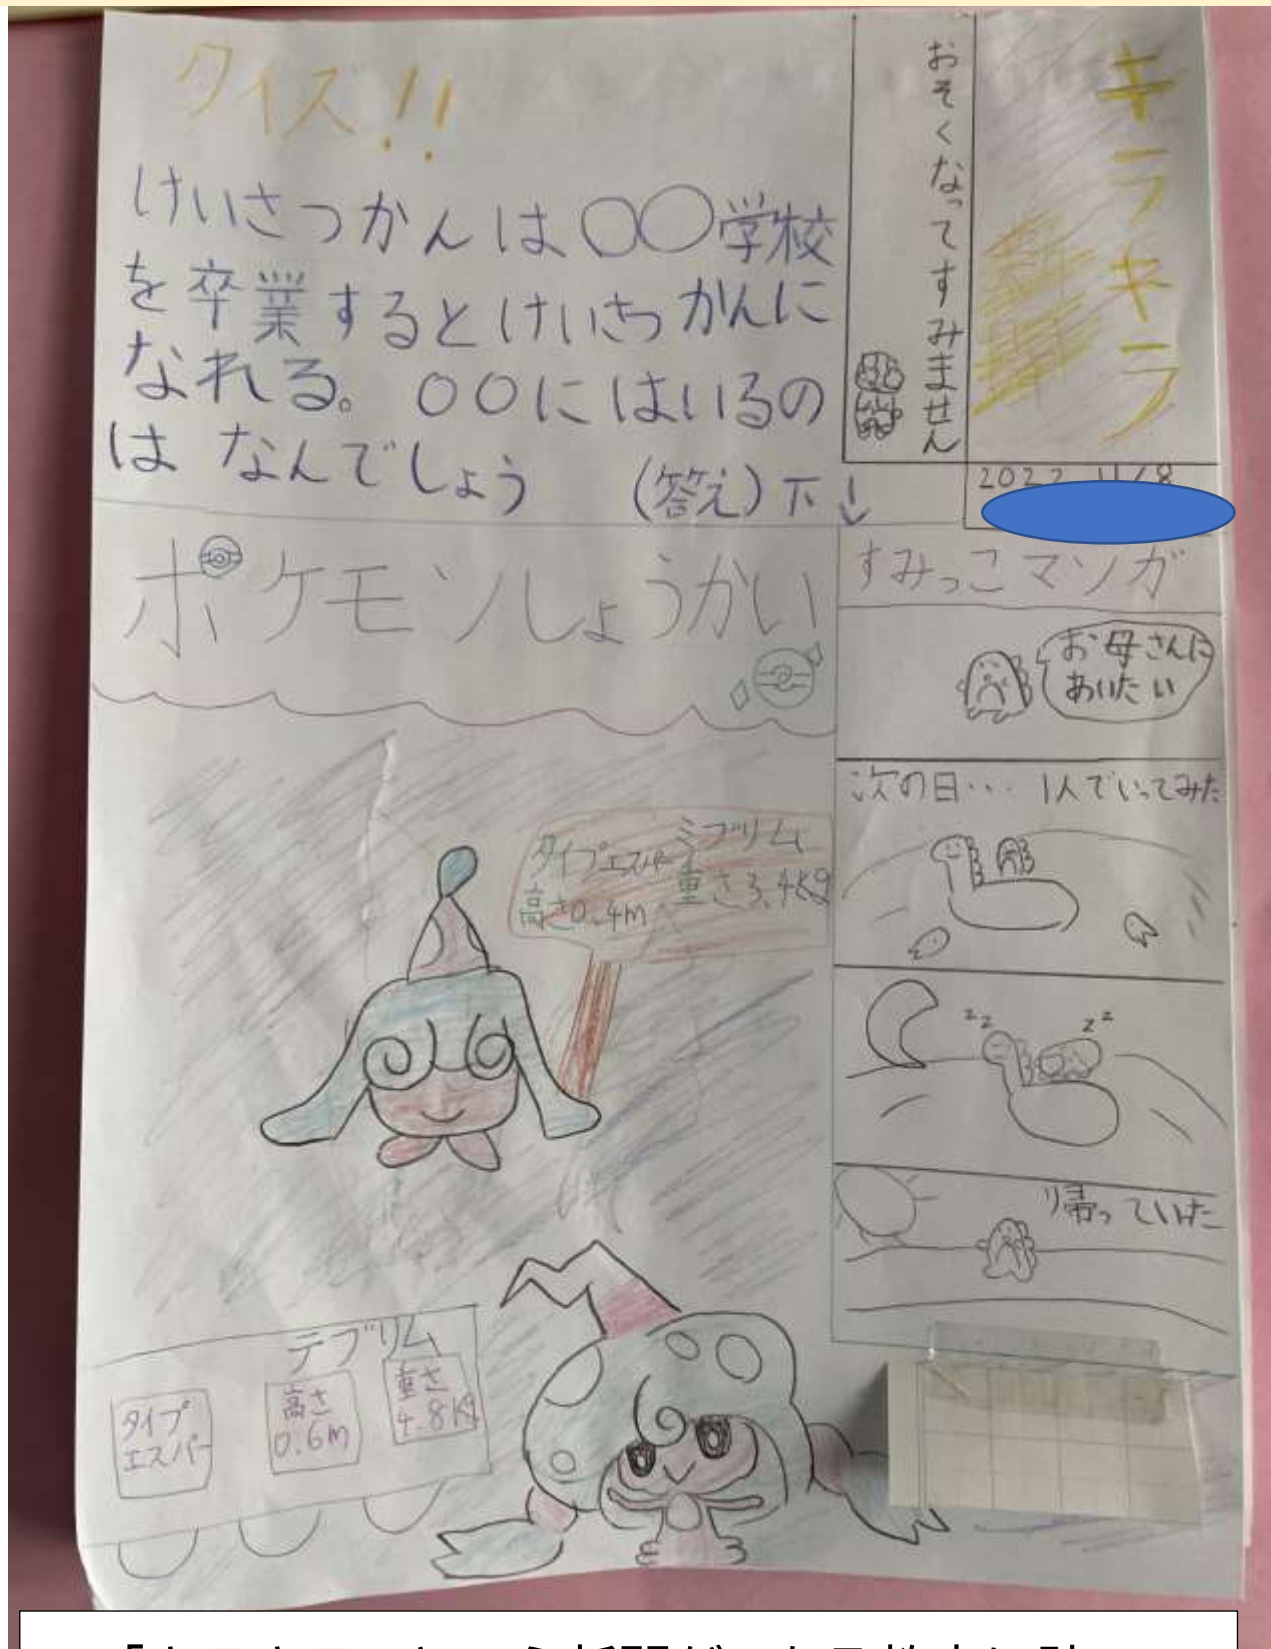 キラキラ
新聞
おそくなってすみません
2022 11/8
クイズ!!
けいさつかんは○○学校
を卒業するとけいさつかんに
なれる。○○にはいるの
は なんでしょう (答え)下↓
ポケモンしょうかい
ミブリム
タイプエスパー 重さ3.4Kg
高さ0.4m
テブリム
タイプ
エスパー
高さ
0.6m
重さ
4.8Kg
すみっこマンガ
お母さんに
あいたい
次の日… 1人でいってみた
zz zz
帰っていった